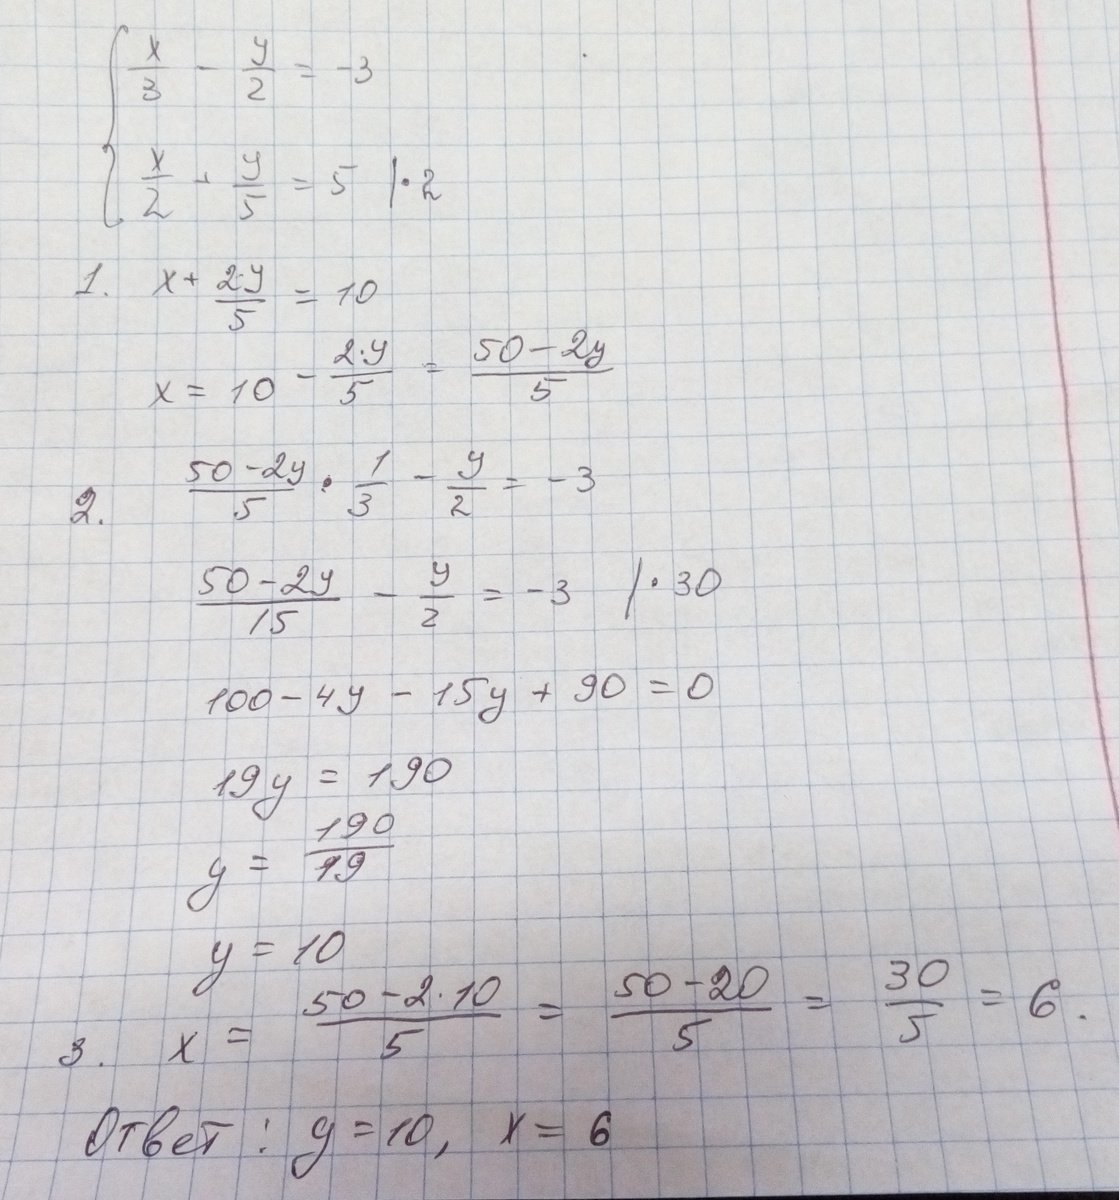 x/3 - y/2 = -3
x/2 + y/5 = 5 | · 2
1. x + 2·y/5 = 10
x = 10 - 2·y/5 = (50 - 2y)/5
2. (50 - 2y)/5 · 1/3 - y/2 = -3
(50 - 2y)/15 - y/2 = -3 | · 30
100 - 4y - 15y + 90 = 0
19y = 190
y = 190/19
y = 10
3. x = (50 - 2·10)/5 = (50 - 20)/5 = 30/5 = 6.
Ответ: y = 10, x = 6